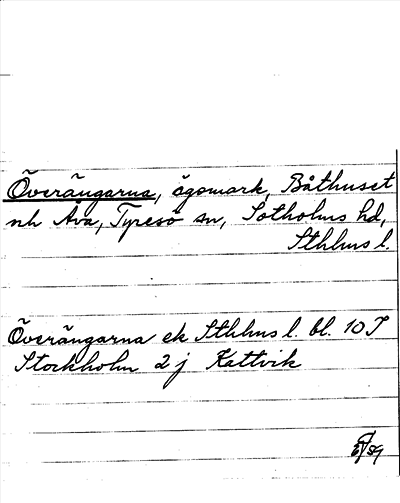 Överängarna, ägomark, Båthuset
nh Åva, Tyresö sn, Sotholms hd,
Sthlms l.
Överängarna ek Sthlms l. bl. 10 I
Stockholm 2 j Kattvik